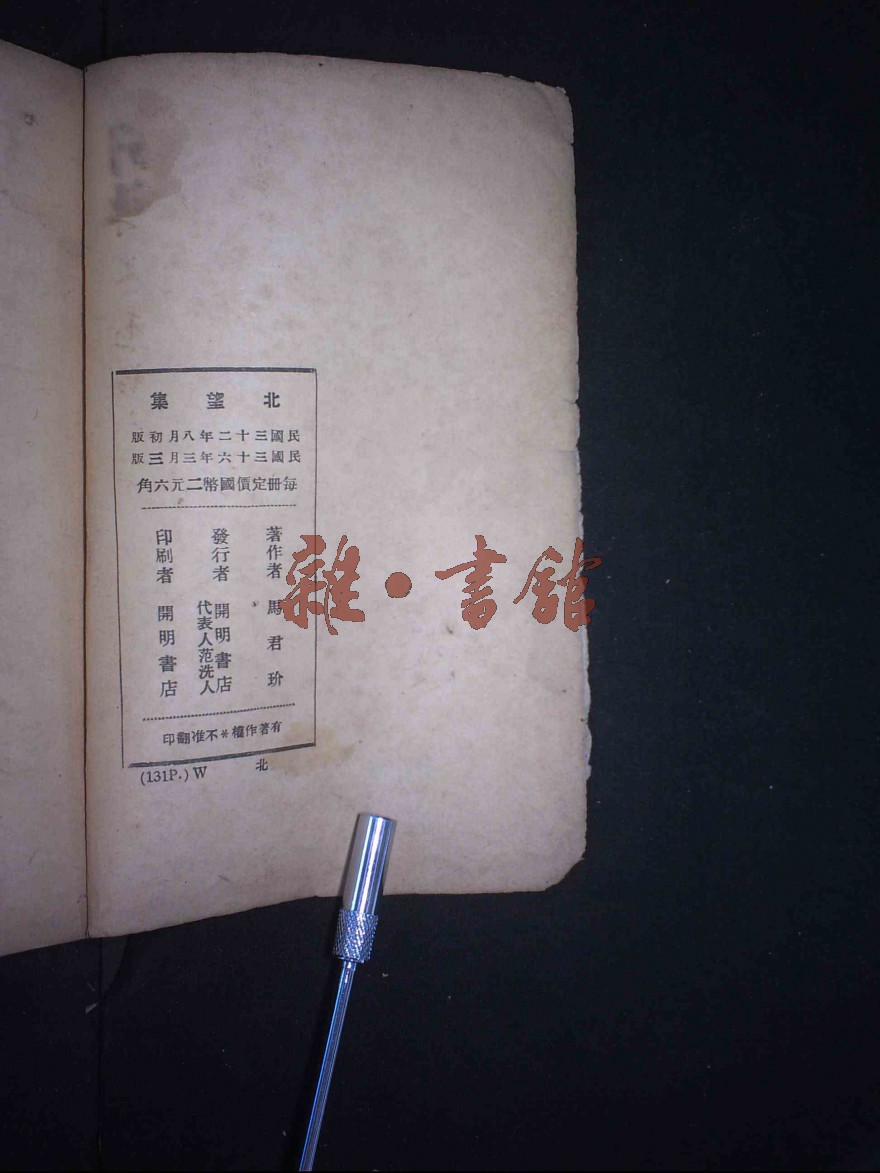 北望集
民國三十二年八月初版
民國三十六年三月三版
每冊定價國幣二元六角
著作者 馬君玠
發行者 開明書店
代表人范洗人
印刷者 開明書店
有著作權*不准翻印
北
(131P.) W
雜·書館